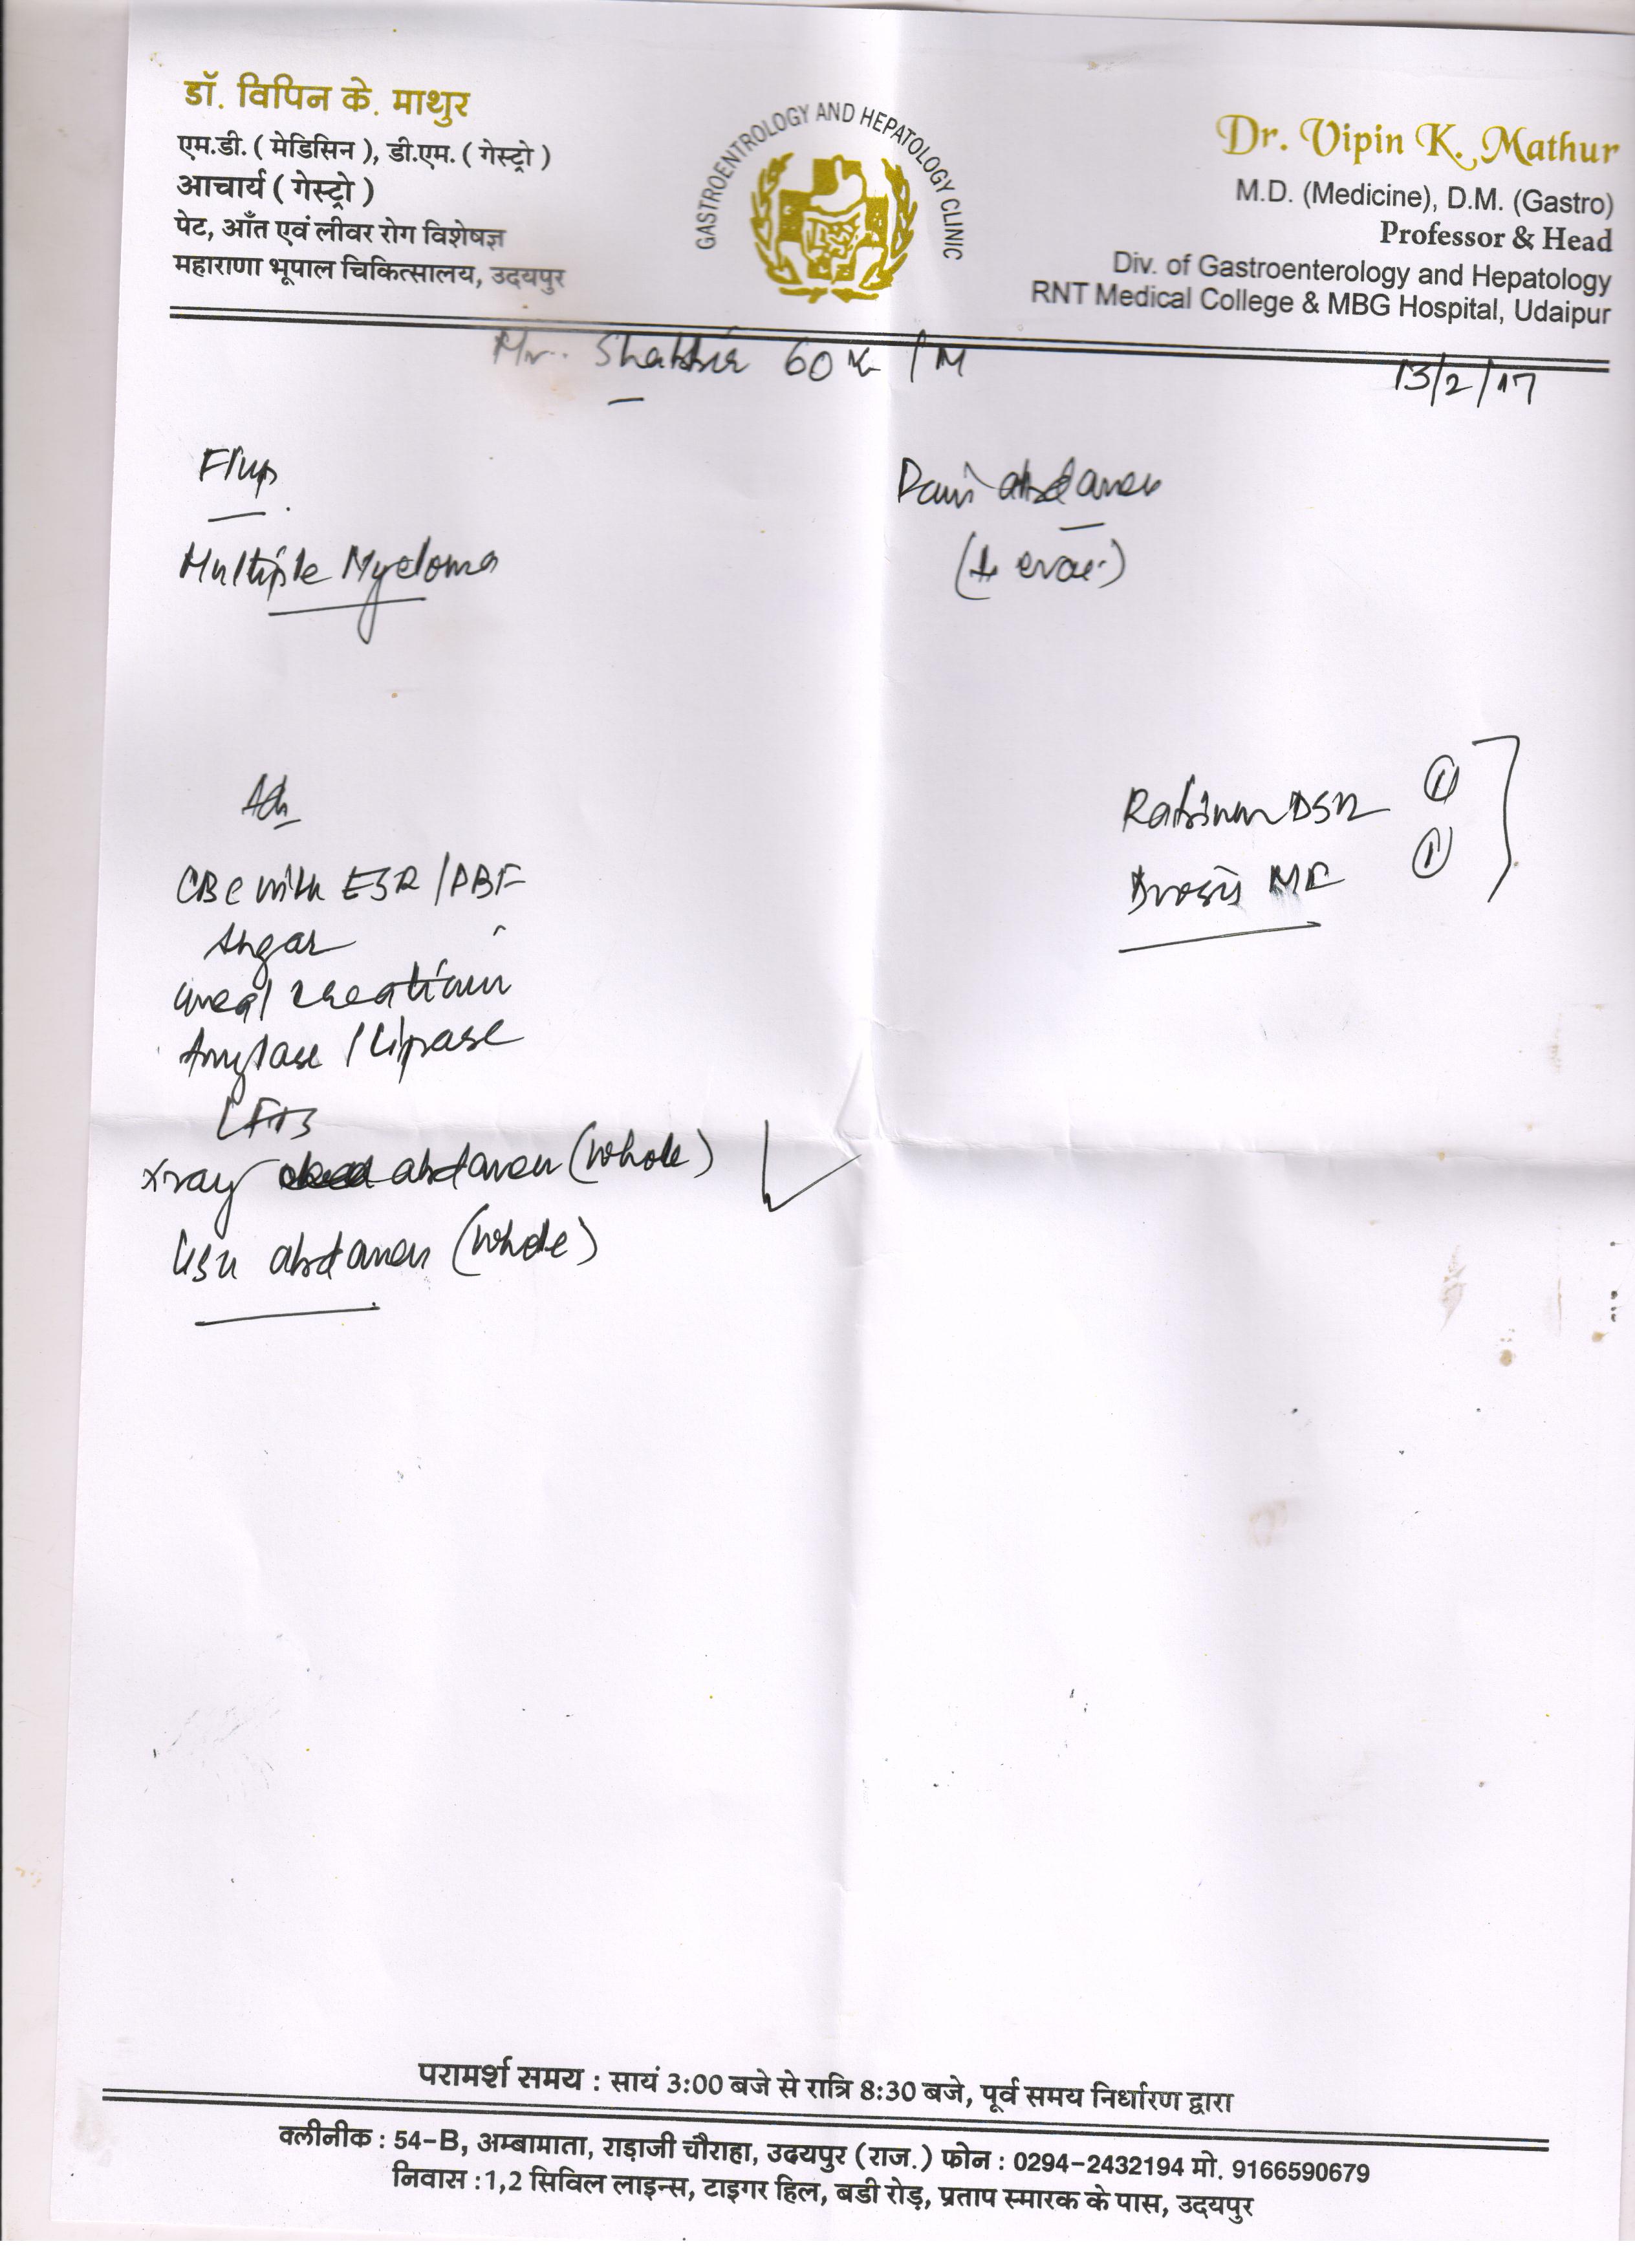 डॉ. विपिन के. माथुर
एम.डी. ( मेडिसिन ), डी.एम. ( गेस्ट्रो )
आचार्य ( गेस्ट्रो )
पेट, आँत एवं लीवर रोग विशेषज्ञ
महाराणा भूपाल चिकित्सालय, उदयपुर
GASTROENTROLOGY AND HEPATOLOGY CLINIC
Dr. Vipin K. Mathur
M.D. (Medicine), D.M. (Gastro)
Professor & Head
Div. of Gastroenterology and Hepatology
RNT Medical College & MBG Hospital, Udaipur
Mr. Shabbir 60 /M
13/2/17
F/up
Multiple Myeloma
Pain abdomen
Adv
CBC with ESR / PBF
Sugar
Urea / creatinin
Amylase / Lipase
LFTs
Xray abdomen (whole)
USG abdomen (whole)
DSR 1
1
परामर्श समय : सायं 3:00 बजे से रात्रि 8:30 बजे, पूर्व समय निर्धारण द्वारा
क्लीनीक : 54-B, अम्बामाता, राड़ाजी चौराहा, उदयपुर (राज.) फोन : 0294-2432194 मो. 9166590679
निवास :1,2 सिविल लाइन्स, टाइगर हिल, बडी रोड़, प्रताप स्मारक के पास, उदयपुर